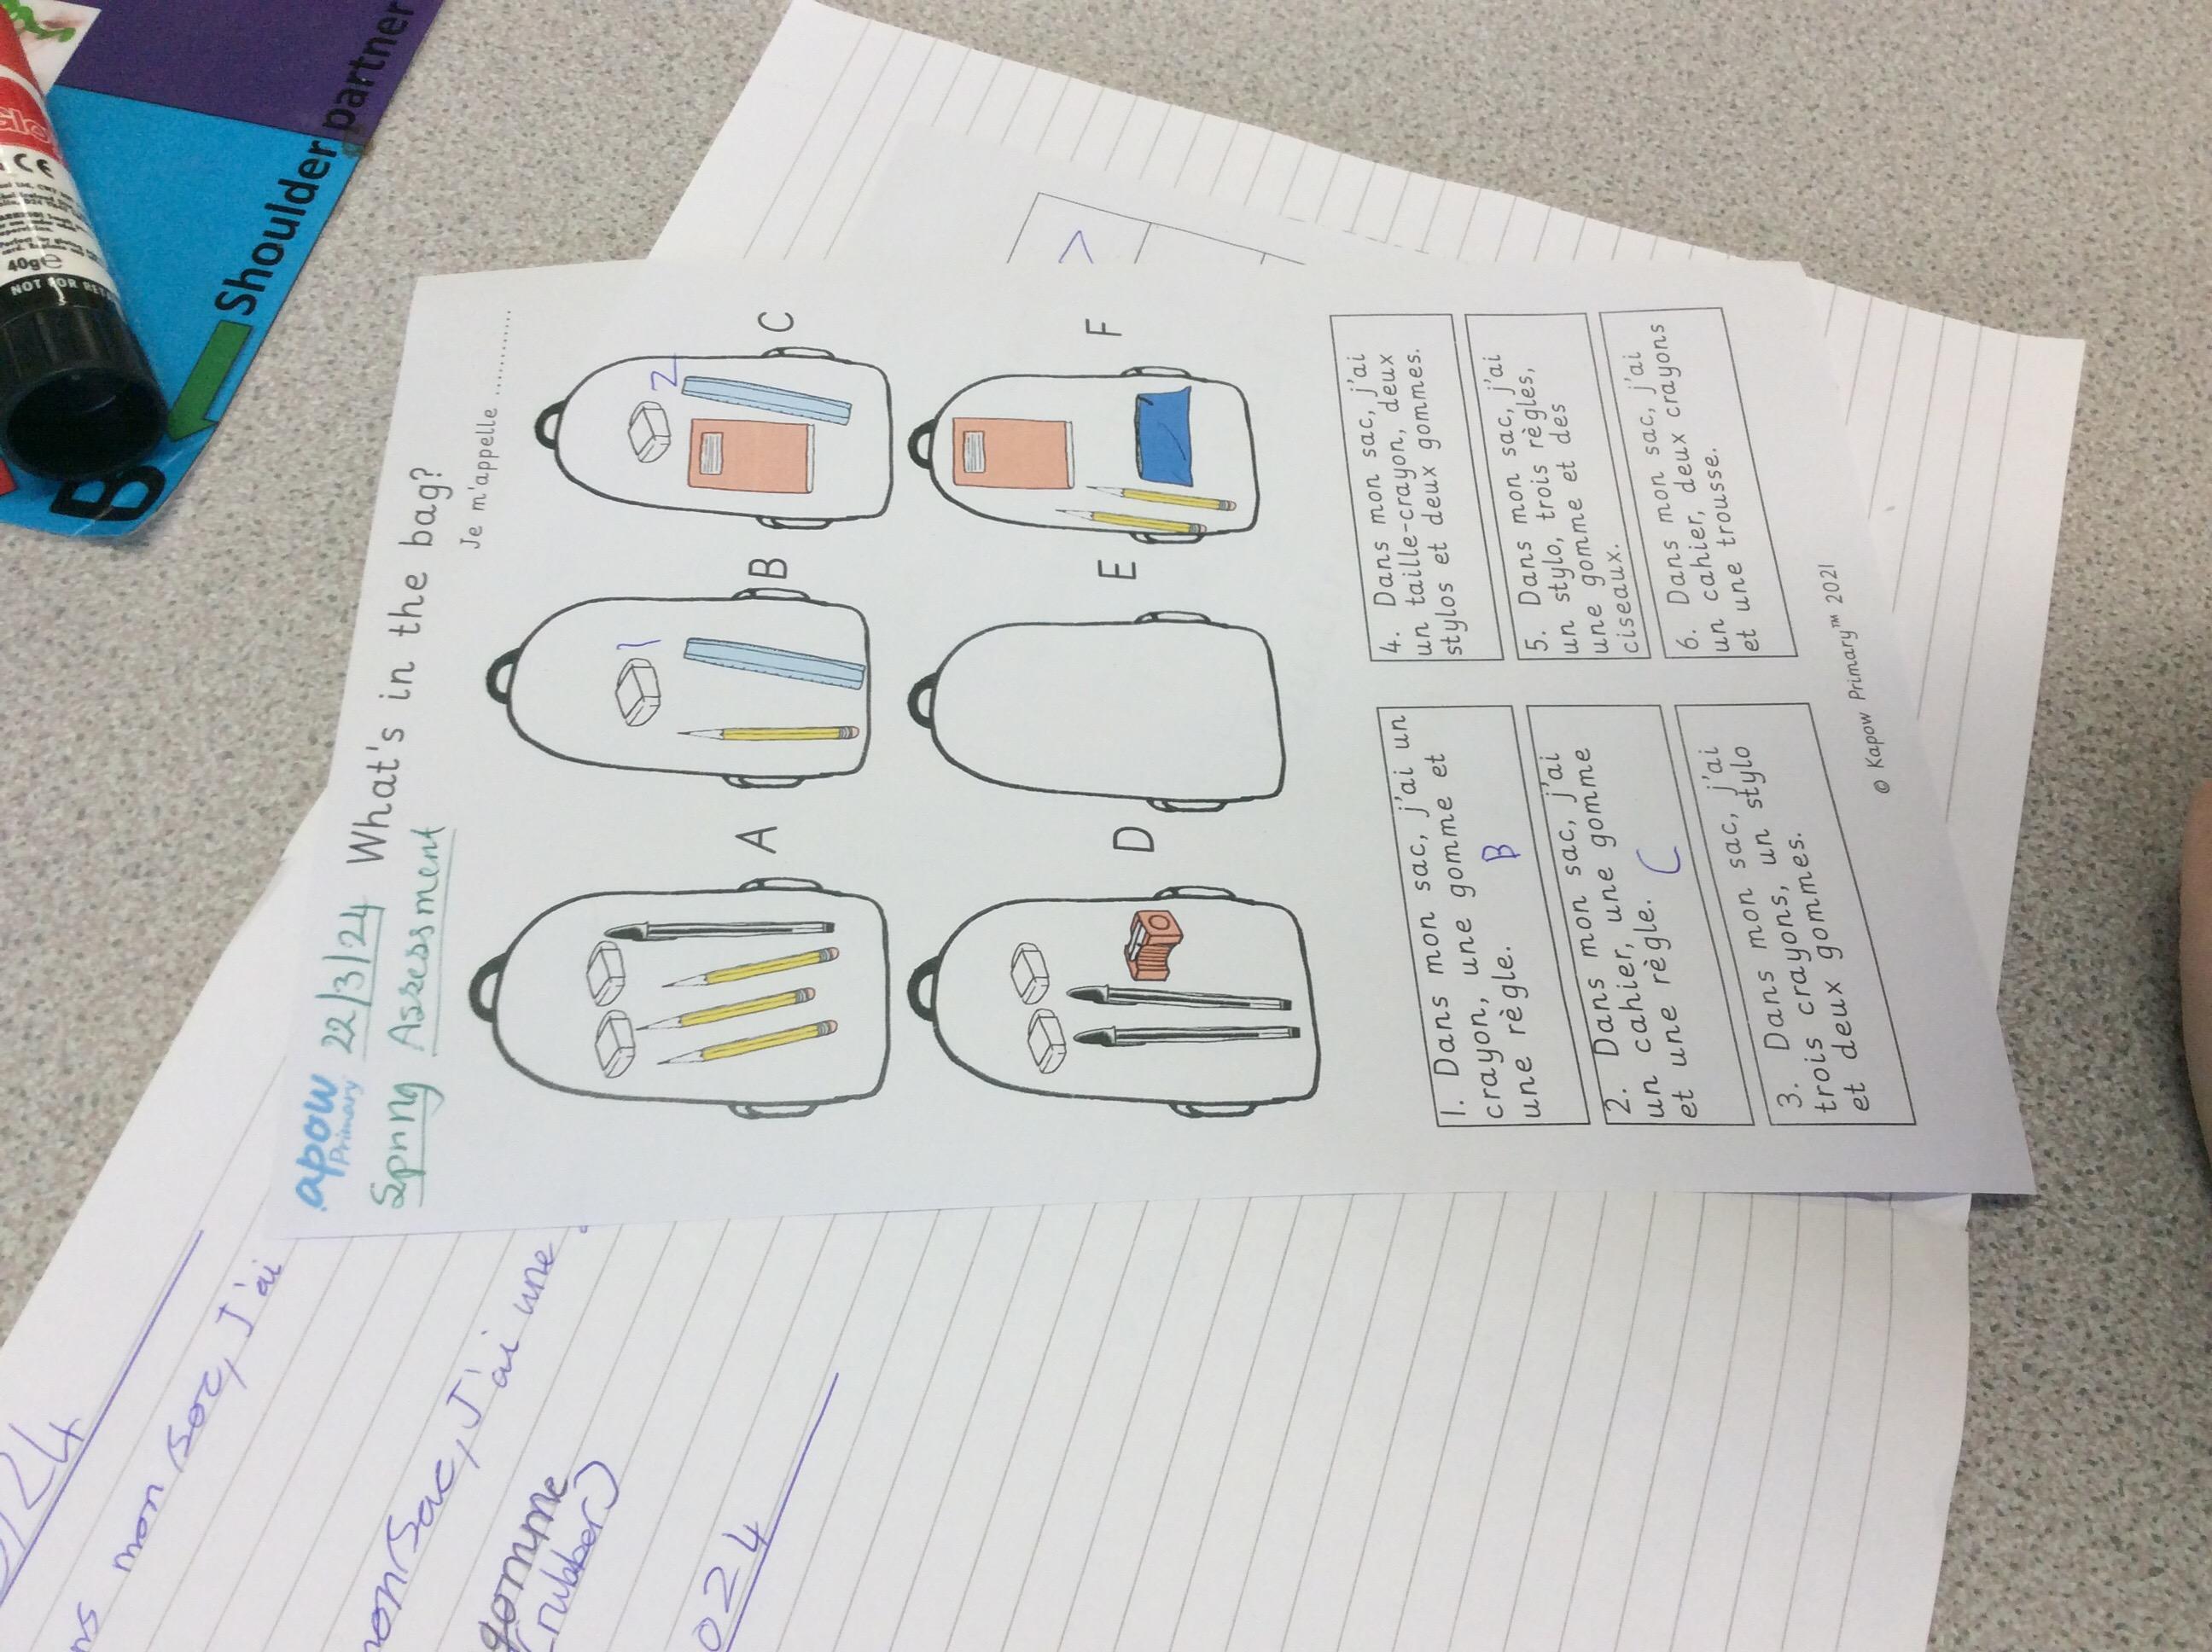 apow
Primary
22/3/24
What's in the bag?
Spring Assessment
Je m'appelle ............
A
B
C
1
2
D
E
F
1. Dans mon sac, j'ai un
crayon, une gomme et
une règle.
B
2. Dans mon sac, j'ai
un cahier, une gomme
et une règle.
C
3. Dans mon sac, j'ai
trois crayons, un stylo
et deux gommes.
4. Dans mon sac, j'ai
un taille-crayon, deux
stylos et deux gommes.
5. Dans mon sac, j'ai
un stylo, trois règles,
une gomme et des
ciseaux.
6. Dans mon sac, j'ai
un cahier, deux crayons
et une trousse.
© Kapow Primary™ 2021
mon sac, J'ai
mon sac, J'ai une
gomme
(rubber)
024
B
Shoulder partner
CE
40g e
NOT FOR